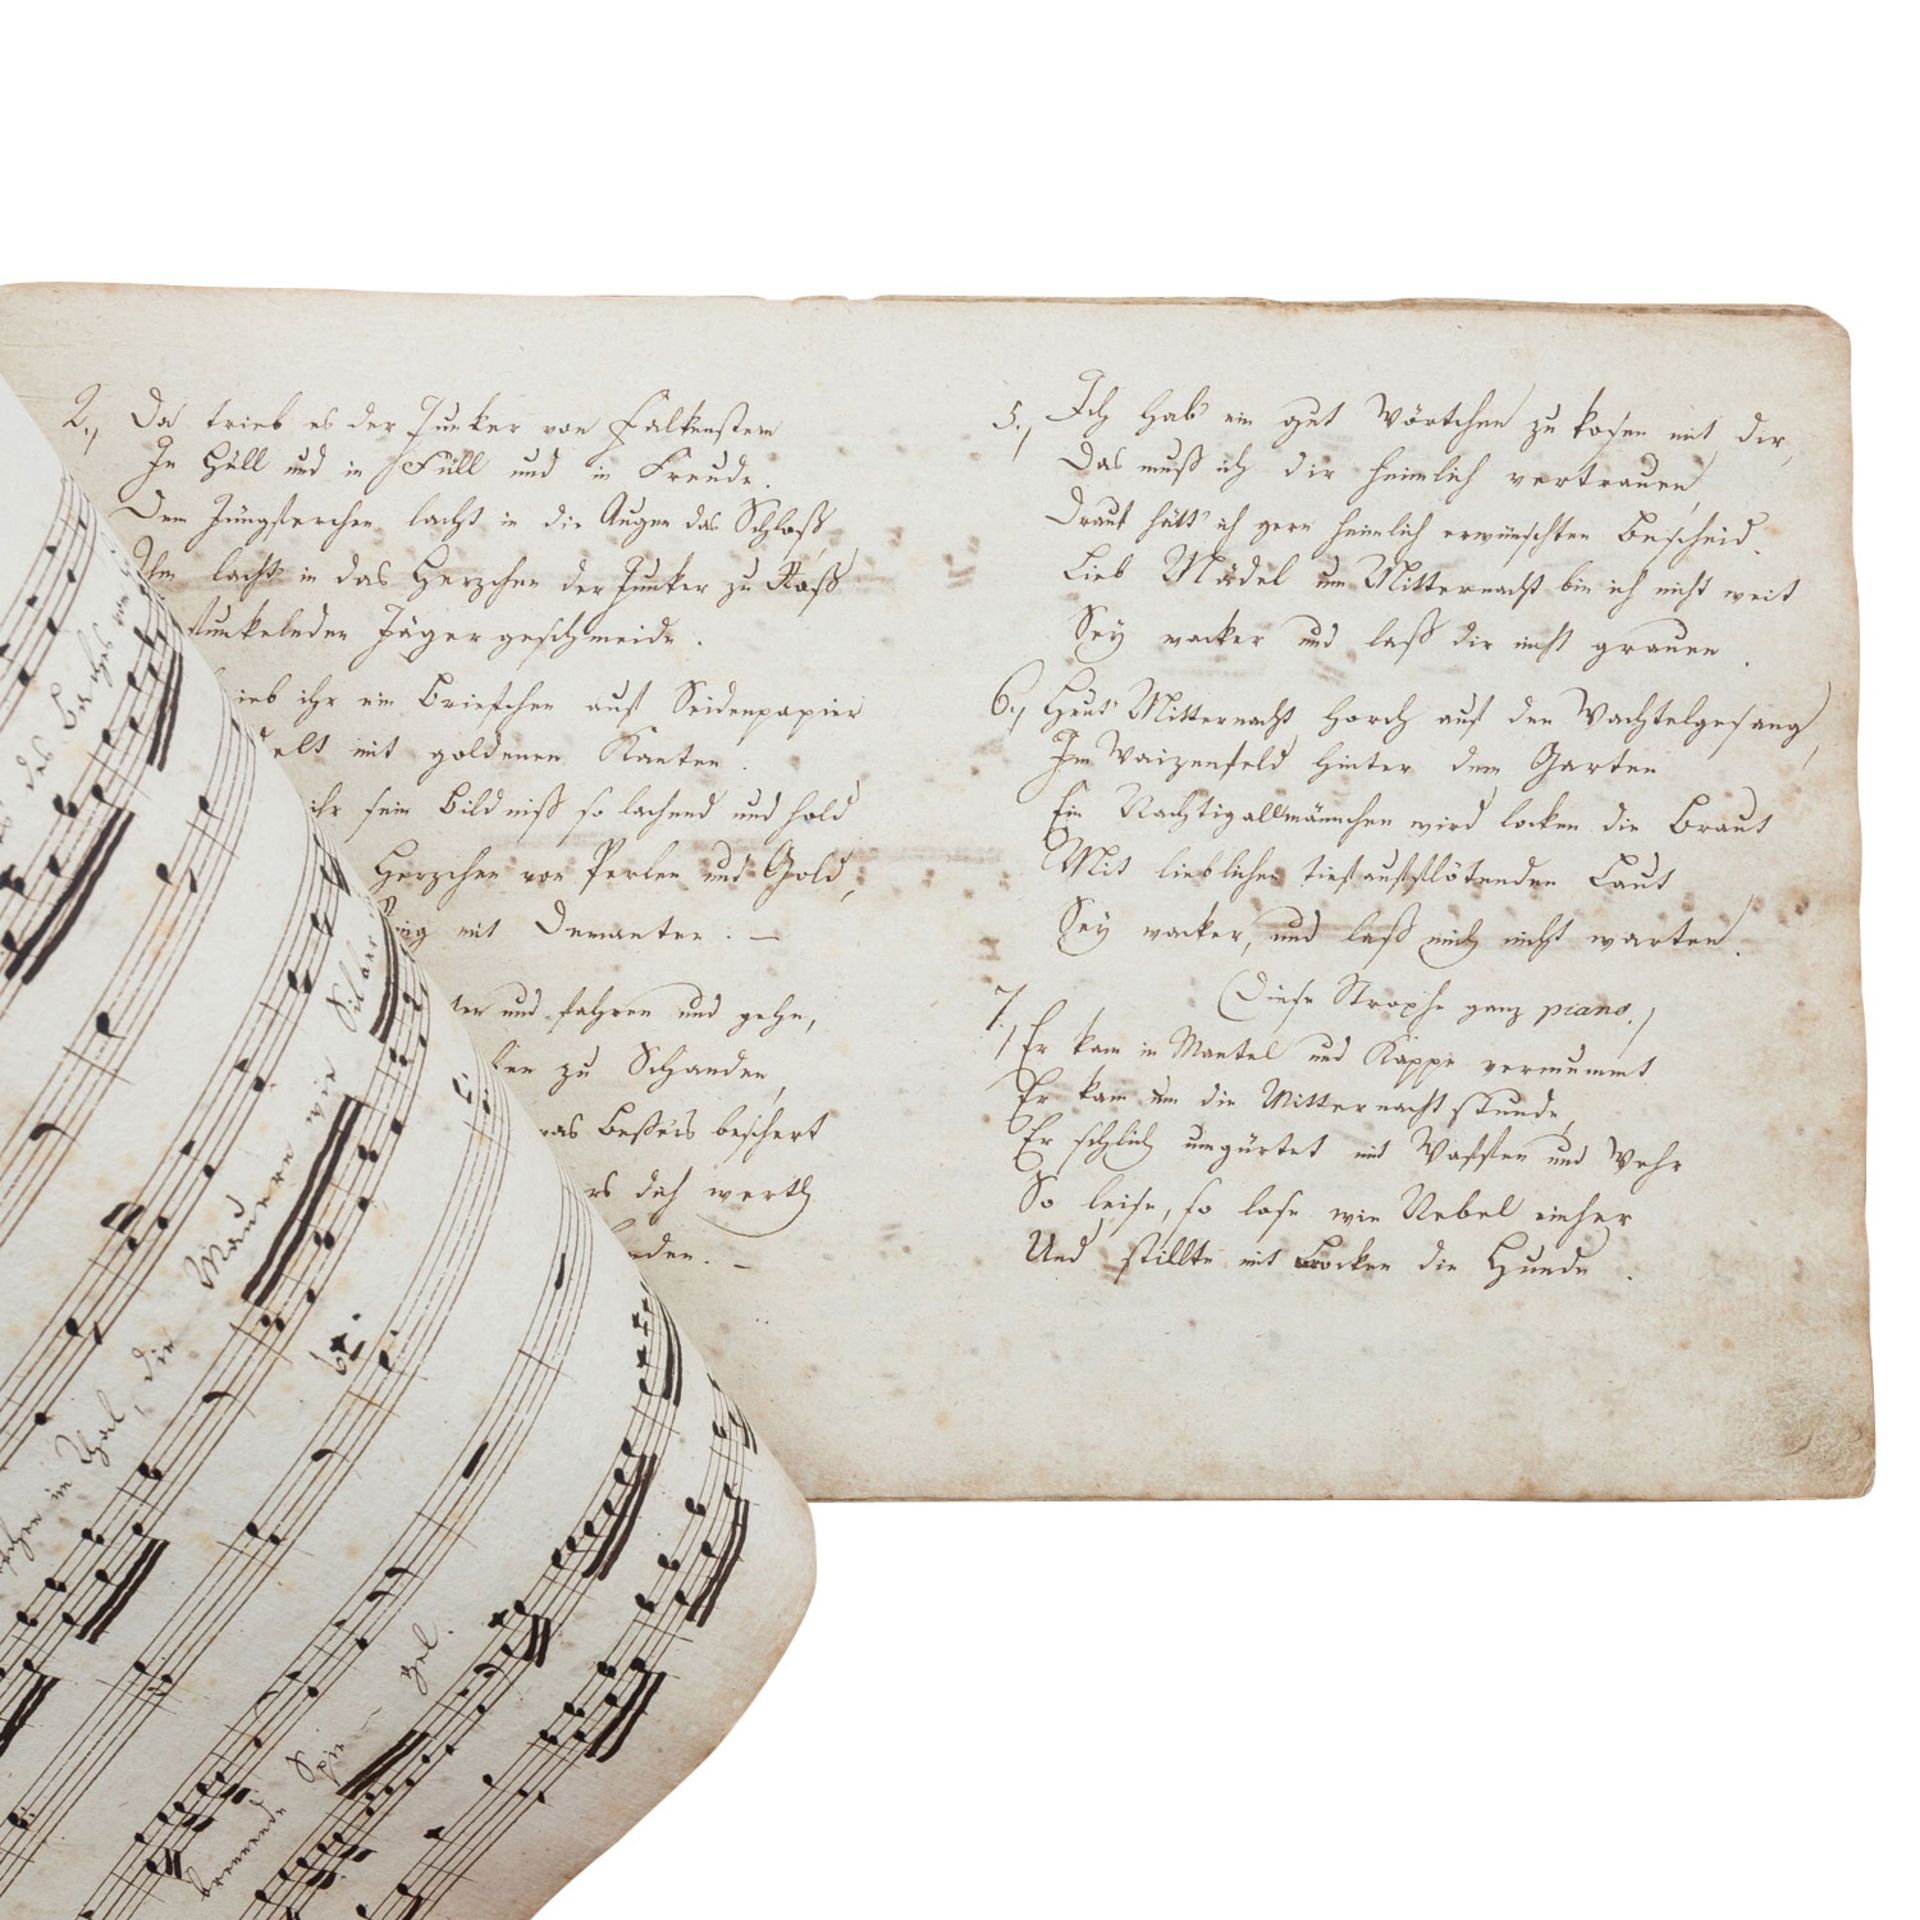 2., Da trieb es der Junker von Falkenstein
In Hüll und in Füll und in Freude.
Dem Jüngferchen lacht in die Augen das Schloß,
Ihm lacht' in das Herzchen der Junker zu Roß
funkelnden Jägergeschmeide.
ieb ihr ein Briefchen auf Seidenpapier
elt mit goldenen Kanten.
ihr sein Bildniß so lachend und hold
Herzchen von Perlen und Gold,
ing mit Demanten. —
ten und fahren und gehn,
len zu Schanden,
was Beßers beschert
rs dich werth
nden. —
5., Ich hab' ein gut Wörtchen zu kosen mit dir,
Das muß ich dir heimlich vertrauen,
Drauf hätt' ich gern heimlich erwünschten Bescheid.
Lieb Mädel um Mitternacht bin ich nicht weit
Sey wacker und laß dir nicht grauen.
6., Heut' Mitternacht horch auf den Wachtelgesang,
Im Waizenfeld hinter dem Garten
Ein Nachtigallmännchen wird locken die Braut
Mit lieblichen tiefaufflötenden Laut
Sey wacker, und laß mich nicht warten.
(Diese Strophe ganz piano.)
7., Er kam in Mantel und Kappe vermummt
Er kam um die Mitternachtstunde,
Er schlich umgürtet mit Waffen und Wehr
So leise, so lose wie Nebel einher
Und stillte mit Brocken die Hunde.
des Bruches von
im Thal, die Mauern wie Silber
brennende Spiegel.